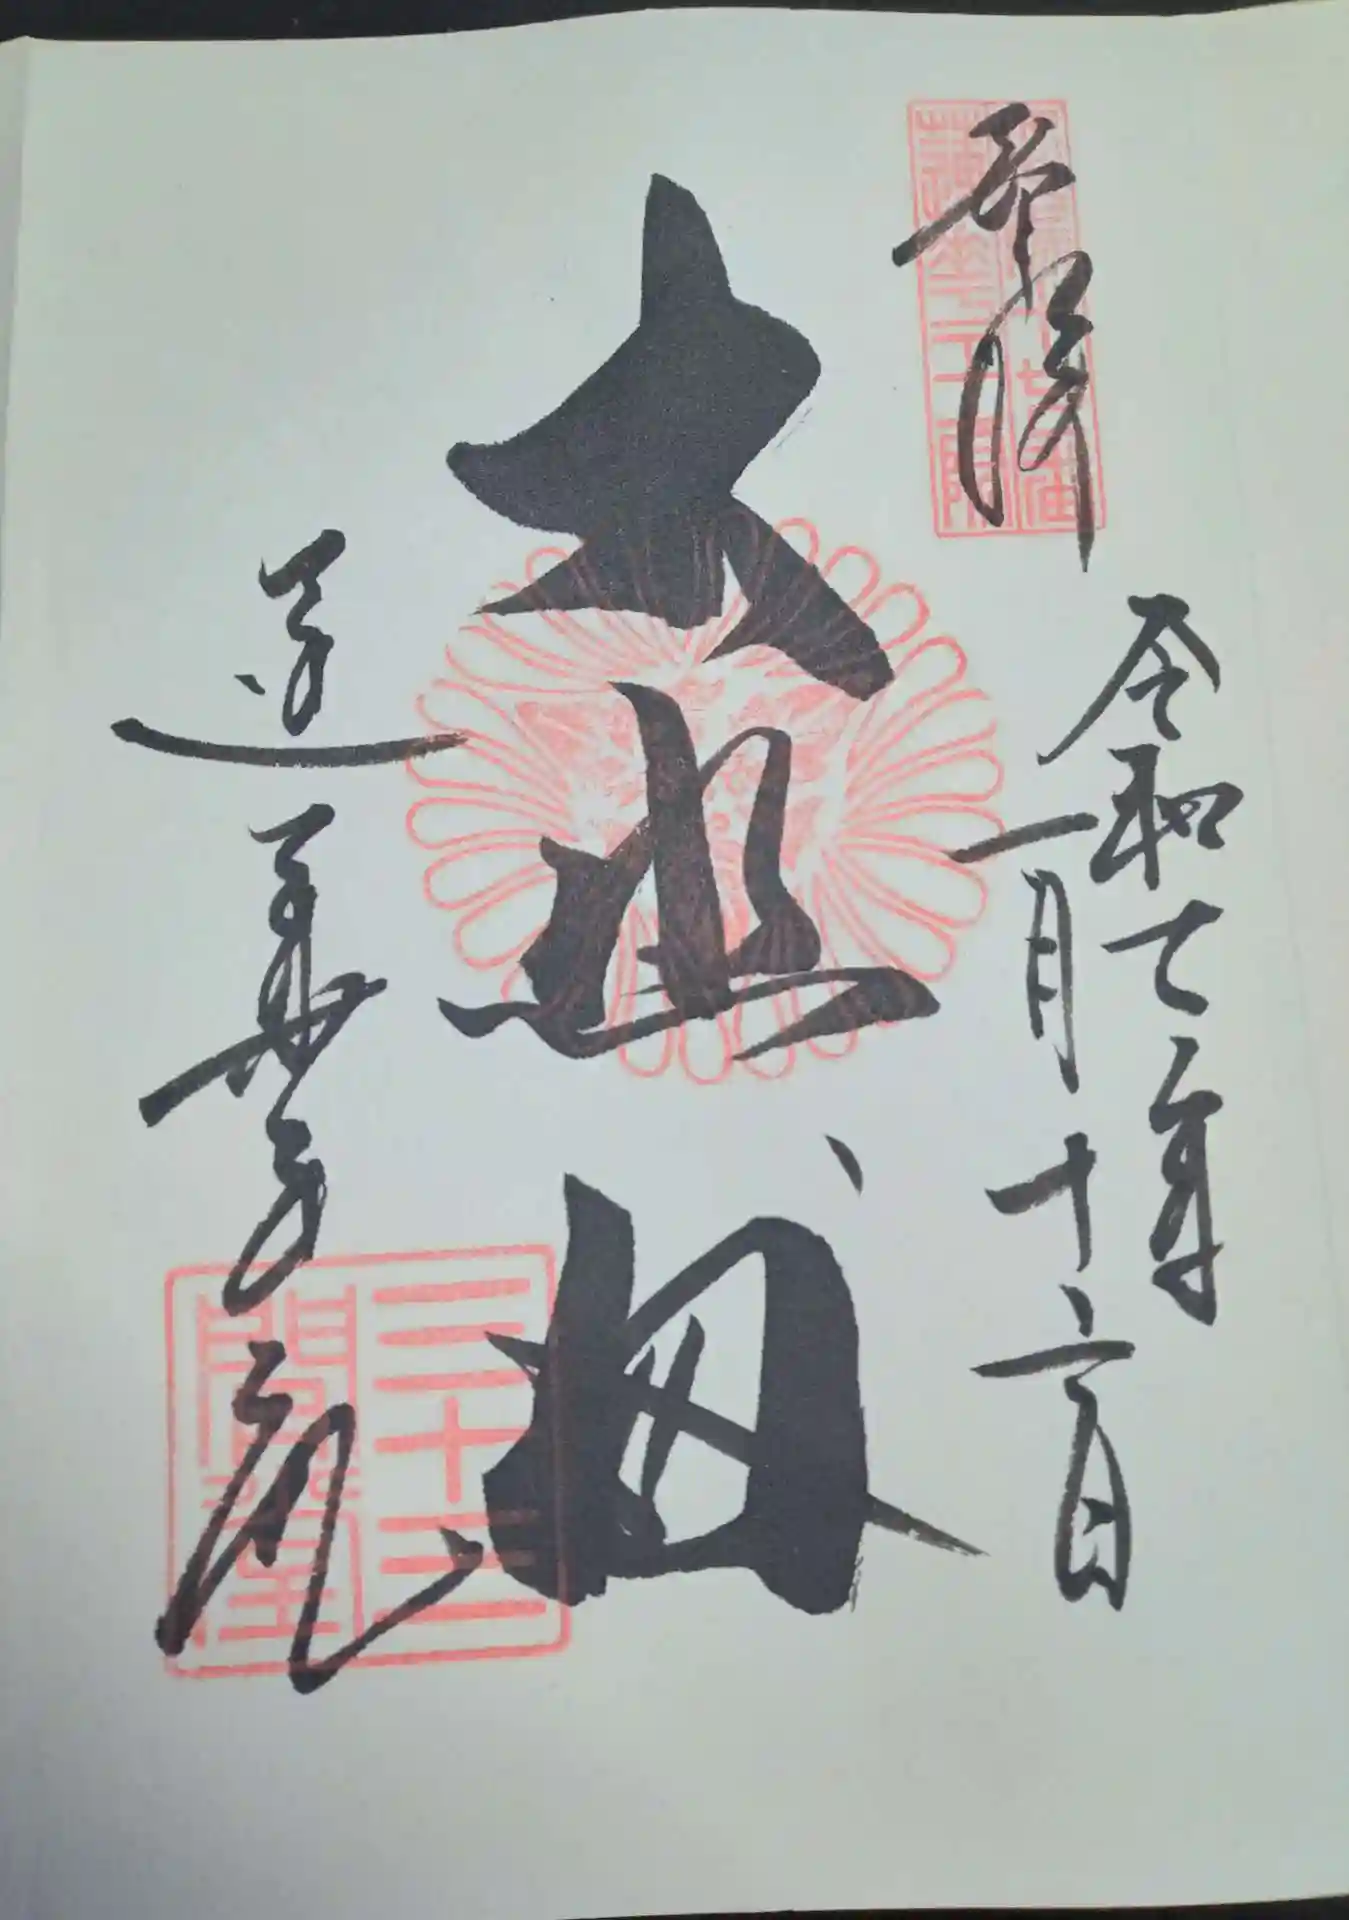 奉拝
蓮華王院
令和七年
一月十六日
大悲殿
蓮華王院
三十三
間堂